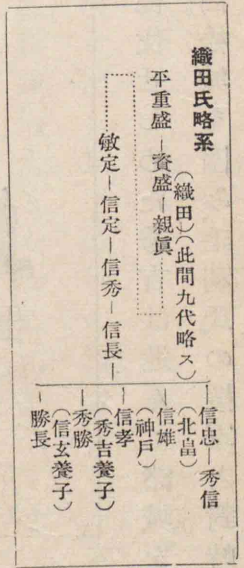 織田氏略系
(織田)(此間九代略ス)
平重盛―資盛―親眞
敏定―信定―信秀―信長―
信忠―秀信
(北畠)
信雄
(神戸)
信孝
(秀吉養子)
秀勝
(信玄養子)
勝長